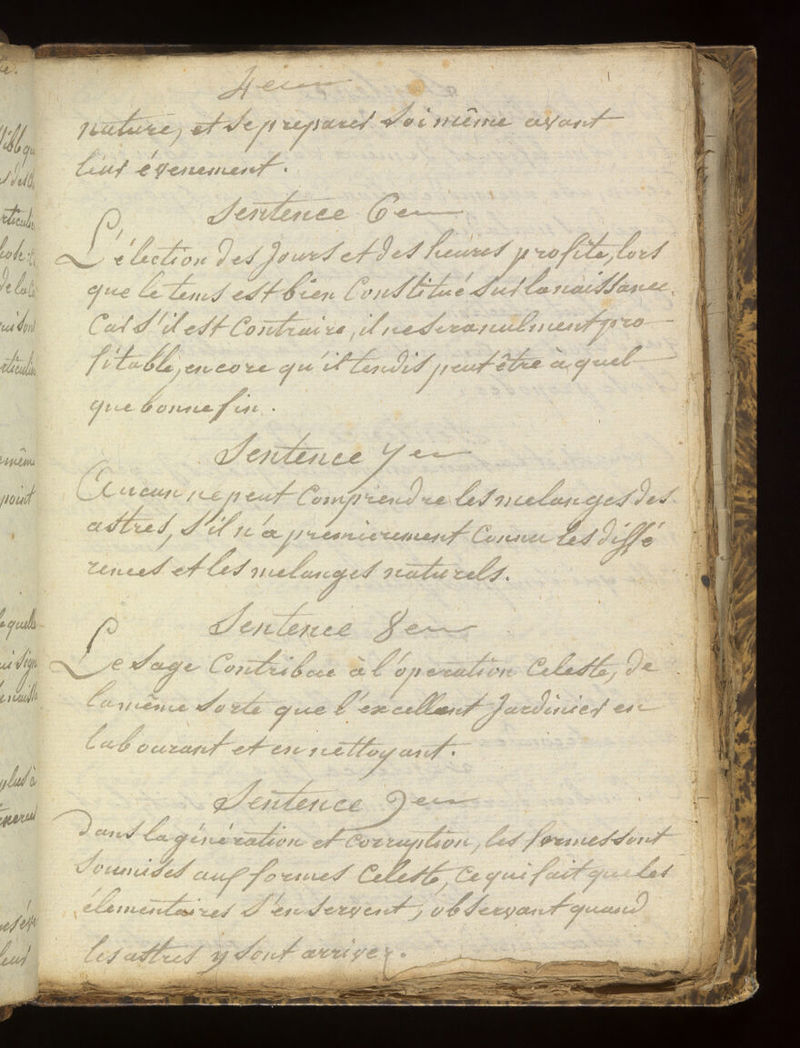 4eme
nature, et se preparer Soi même avant
leur évenement.
Sentence 6eme
L'élection des Jours et des heures profite, lors
que le tems est bien Constitué sur la naissance.
Car s'il est Contraire, il ne sera nulment pro
fitable, encore qu'il tendis peut être à quel
que bonne fin.
Sentence 7eme
Aucun ne peut Comprendre les melanges des
astres, s'il n'a premierement Connu les diffé
rences et les melanges naturels.
Sentence 8eme
Le Sage Contribue à l'operation Celeste, de
la même Sorte que l'excellent Jardinier en
labourant et en nettoyant.
Sentence 9eme
Dans la génération et corruption, les formes sont
Soumises aux formes Celeste, ce qui fait que les
élementaires s'en servent, observant quand
les astres y sont arriver.